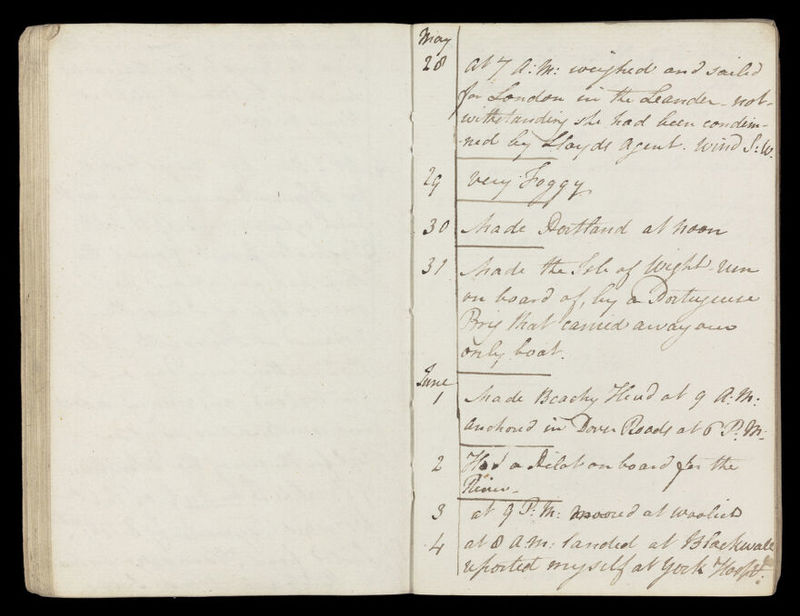 May
28 At 7 A:M: weighed and sailed
for London in the Leander- not-
withstanding she had been condem-
-ned by Lloyds Agent. Wind S:W.
29 very Foggy
30 Made Portland at noon
31 Made the Isle of Wight run
on board of, by a Portuguese
Brig that carried away our
only boat.
June
1 Made Beachy Head at 9 A:M:
Anchored in Dover Roads at 6 P:M:
2 Had a Pilot on board for the
River-
3 at 9 P:M: moored at Woolich
4 at 8 A:M: landed at Blackwall
reported myself at York Hospl: